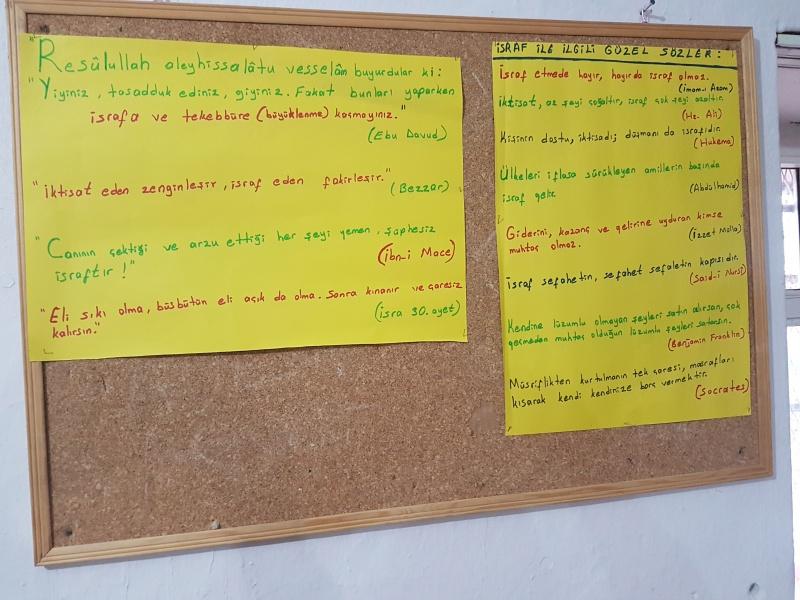 Resûlullah aleyhissalâtu vesselâm buyurdular ki:
"Yiyiniz, tasadduk ediniz, giyiniz. Fakat bunları yaparken
israfa ve tekebbüre (büyüklenme) kaçmayınız."
(Ebu Davud)
"İktisat eden zenginleşir, israf eden fakirleşir."
(Bezzar)
"Canının çektiği ve arzu ettiği her şeyi yemen, şüphesiz
israftır!"
(İbn-i Mace)
"Eli sıkı olma, büsbütün eli açık da olma. Sonra kınanır ve çaresiz
kalırsın."
(İsra 30. ayet)
İSRAF İLE İLGİLİ GÜZEL SÖZLER:
İsraf etmede hayır, hayırda israf olmaz.
(İmam-ı Azam)
İktisat, az şeyi çoğaltır, israf çok şeyi azaltır.
(Hz. Ali)
Kişinin dostu, iktisadı; düşmanı da israfıdır.
(Hukema)
Ülkeleri iflasa sürükleyen amillerin başında
israf gelir.
(Abdülhamid)
Giderini, kazanç ve gelirine uyduran kimse
muhtaç olmaz.
(İzzet Molla)
İsraf sefahetin, sefahet sefaletin kapısıdır.
(Said-i Nursi)
Kendine lüzumlu olmayan şeyleri satın alırsan, çok
geçmeden muhtaç olduğun lüzumlu şeyleri satarsın.
(Benjamin Franklin)
Müsriflikten kurtulmanın tek çaresi, masrafları
kısarak kendi kendinize borç vermektir.
(Socrates)